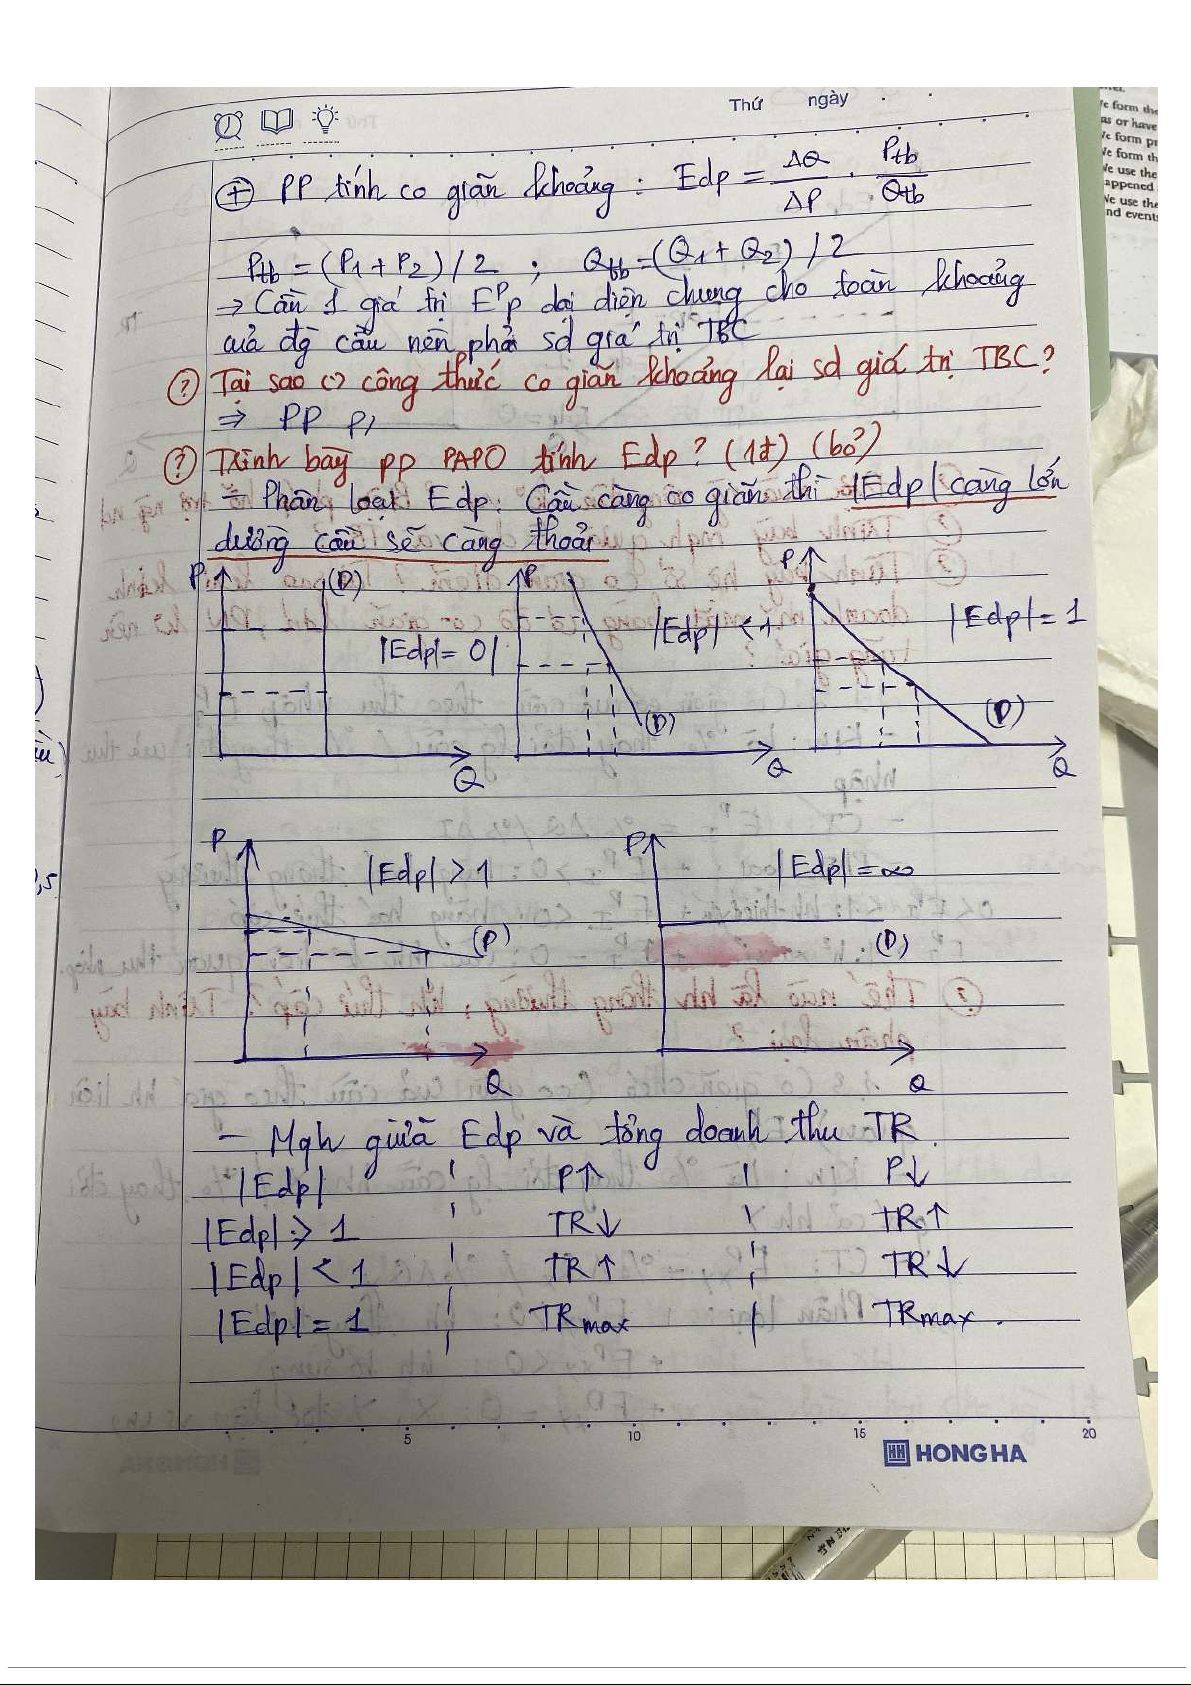 Thứ ngày
⊕ PP tính co giãn khoảng: Edp = ΔQ/ΔP . Ptb/Qtb
Ptb = (P1 + P2) / 2 ; Qtb = (Q1 + Q2) / 2
→ Cần 1 giá trị E^P p đại diện chung cho toàn khoảng
của đg cầu nên phải sd giá trị TBC
? Tại sao công thức co giãn khoảng lại sd giá trị TBC?
⇒ PP
? Trình bày pp PAPO tính Edp? (1đ) (bỏ?)
- Phân loại Edp: Cầu càng co giãn thì |Edp| càng lớn
đường cầu sẽ càng thoải
P (D) |Edp| = 0 Q
P |Edp| < 1 (D) Q
P |Edp| = 1 (D) Q
P |Edp| > 1 (D) Q
P |Edp| = ∞ (D) Q
- Mqh giữa Edp và tổng doanh thu TR.
|Edp| P↑ P↓
|Edp| > 1 TR↓ TR↑
|Edp| < 1 TR↑ TR↓
|Edp| = 1 TRmax TRmax.
5 10 15 20
HONG HA